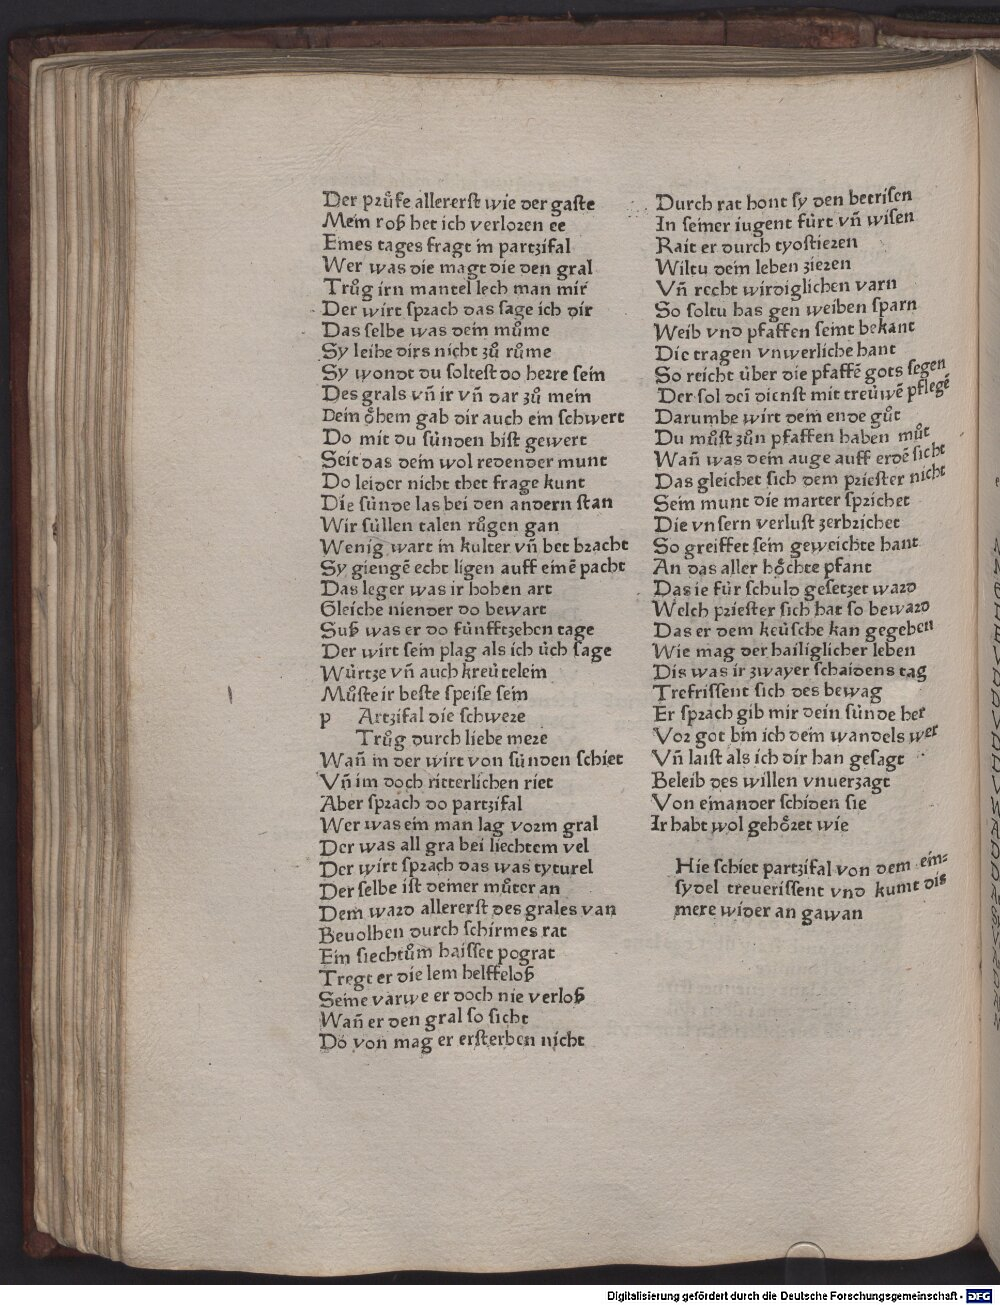 Der pruͦfe allererst wie der gaste
Mein roß het ich verloren ee
Eines tages fragt in partzifal
Wer was die magt die den gral
Truͦg irn mantel lech man mir
Der wirt sprach das sage ich dir
Das selbe was dein muͦme
Sy leihe dirs nicht zuͦ ruͦme
Sy wondt du soltest do herre sein
Des grals vñ ir vñ dar zuͦ mein
Dein oͤhem gab dir auch ein schwert
Do mit du sünden bist gewert
Seit das dein wol redender munt
Do leider nicht thet frage kunt
Die sünde las bei den andern stan
Wir süllen talen ruͦgen gan
Wenig wart in kulter vñ bet bracht
Sy giengē echt ligen auff einē pacht
Das leger was ir hohen art
Gleiche niender do bewart
Suß was er do fünfftzehen tage
Der wirt sein plag als ich üch sage
Würtze vñ auch kreütelein
Muͦste ir beste speise sein
p Artzifal die schwere
Truͦg durch liebe mere
Wañ in der wirt von sünden schiet
Vñ im doch ritterlichen riet
Aber sprach do partzifal
Wer was ein man lag vorm gral
Der was all gra bei liechtem vel
Der wirt sprach das was tyturel
Der selbe ist deiner muͦter an
Dem ward allererst des grales van
Beuolhen durch schirmes rat
Ein siechtuͦm haisset pograt
Tregt er die lem helffeloß
Seine varwe er doch nie verloß
Wañ er den gral so sicht
Do von mag er ersterben nicht
Durch rat hont sy den betrisen
In seiner iugent fürt vñ wisen
Rait er durch tyostieren
Wiltu dein leben zieren
Vñ recht wirdiglichen varn
So soltu has gen weiben sparn
Weib vnd pfaffen seint bekant
Die tragen vnwerliche hant
So reicht über die pfaffē gots segen
Der sol dei dienst mit treüwē pflegē
Darumbe wirt dein ende guͦt
Du muͦst zuͦn pfaffen haben muͦt
Wañ was dein auge auff erdē sicht
Das gleichet sich dem priester nicht
Sein munt die marter sprichet
Die vnsern verlust zerbrichet
So greiffet sein geweichte hant
An das aller hoͤchte pfant
Das ie für schuld gesetzet ward
Welch priester sich hat so beward
Das er dem keüsche kan gegeben
Wie mag der hailiglicher leben
Dis was ir zwayer schaidens tag
Trefrissent sich des bewag
Er sprach gib mir dein sünde her
Vor got bin ich dein wandels wer
Vñ laist als ich dir han gesagt
Beleib des willen vnuerzagt
Von einander schiden sie
Ir habt wol gehoͤret wie
Hie schiet partzifal von dem ein-
sydel treuerissent vnd kumt dis
mere wider an gawan
Digitalisierung gefördert durch die Deutsche Forschungsgemeinschaft - DFG